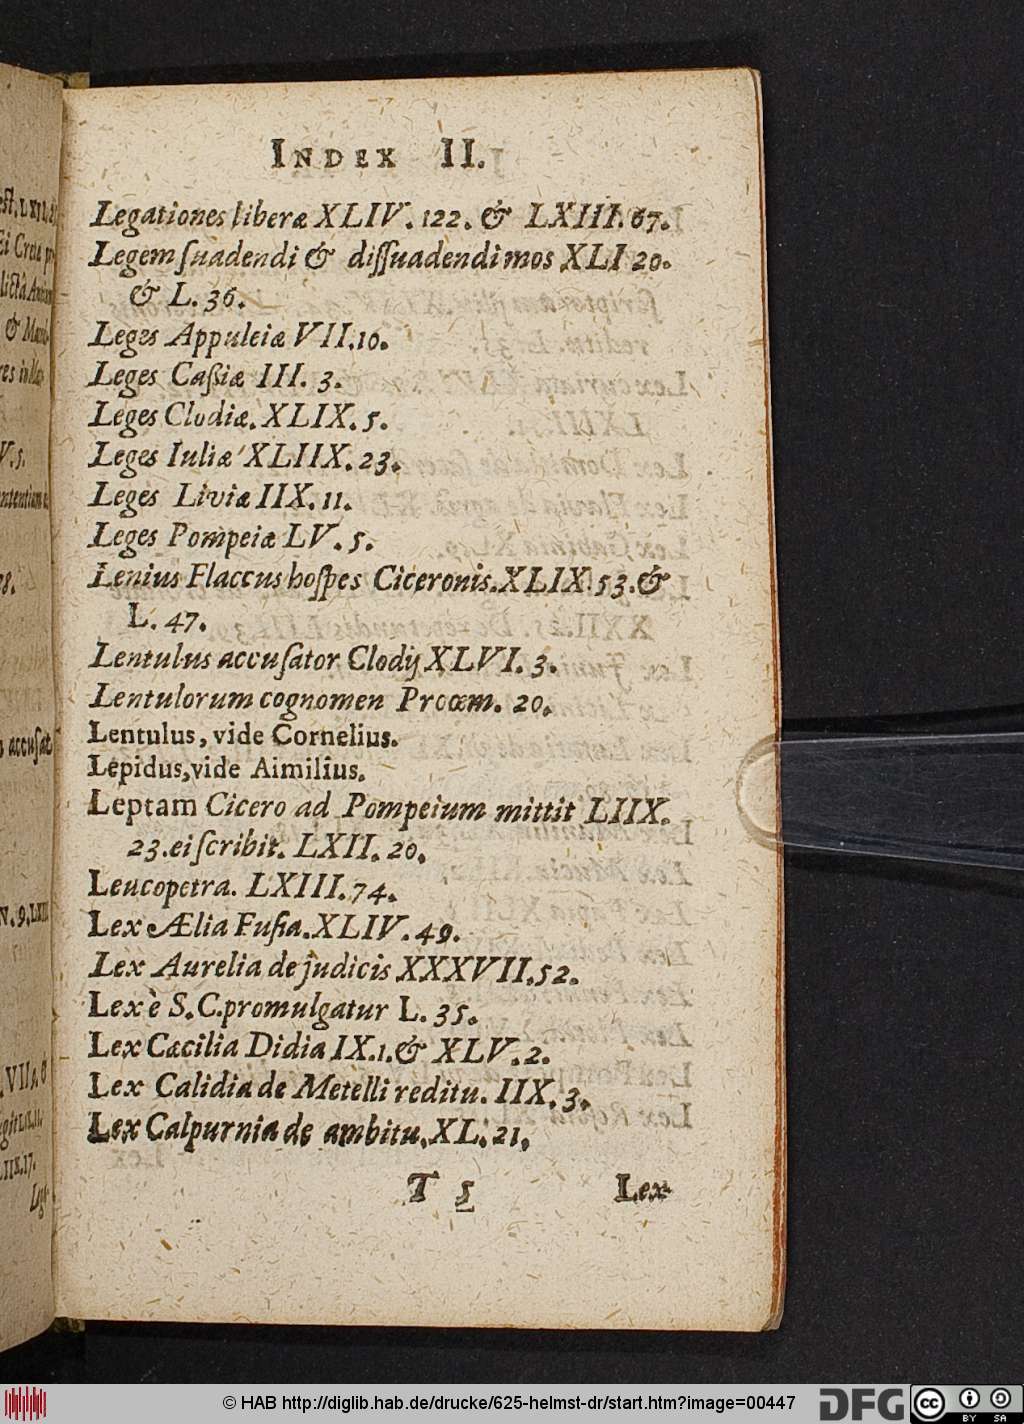 INDEX II.
Legationes liberæ XLIV. 122. & LXIII. 67.
Legem ſuadendi & diſſuadendi mos XLI 20.
& L. 36.
Leges Appuleiæ VII. 10.
Leges Caßiæ III. 3.
Leges Clodiæ. XLIX. 5.
Leges Iuliæ XLIIX. 23.
Leges Liviæ IIX. 11.
Leges Pompeiæ LV. 5.
Lenius Flaccus hoſpes Ciceronis. XLIX. 53. &
L. 47.
Lentulus accuſator Clodij XLVI. 3.
Lentulorum cognomen Proœm. 20.
Lentulus, vide Cornelius.
Lepidus, vide Aimilius.
Leptam Cicero ad Pompeium mittit LIIX.
23. ei ſcribit. LXII. 20.
Leucopetra. LXIII. 74.
Lex Ælia Fuſia. XLIV. 49.
Lex Aurelia de judicis XXXVII. 52.
Lex è S. C. promulgatur L. 35.
Lex Cæcilia Didia IX. 1. & XLV. 2.
Lex Calidia de Metelli reditu. IIX. 3.
Lex Calpurnia de ambitu, XL. 21.
T 5 Lex
© HAB http://diglib.hab.de/drucke/625-helmst-dr/start.htm?image=00447
DFG
cc BY SA